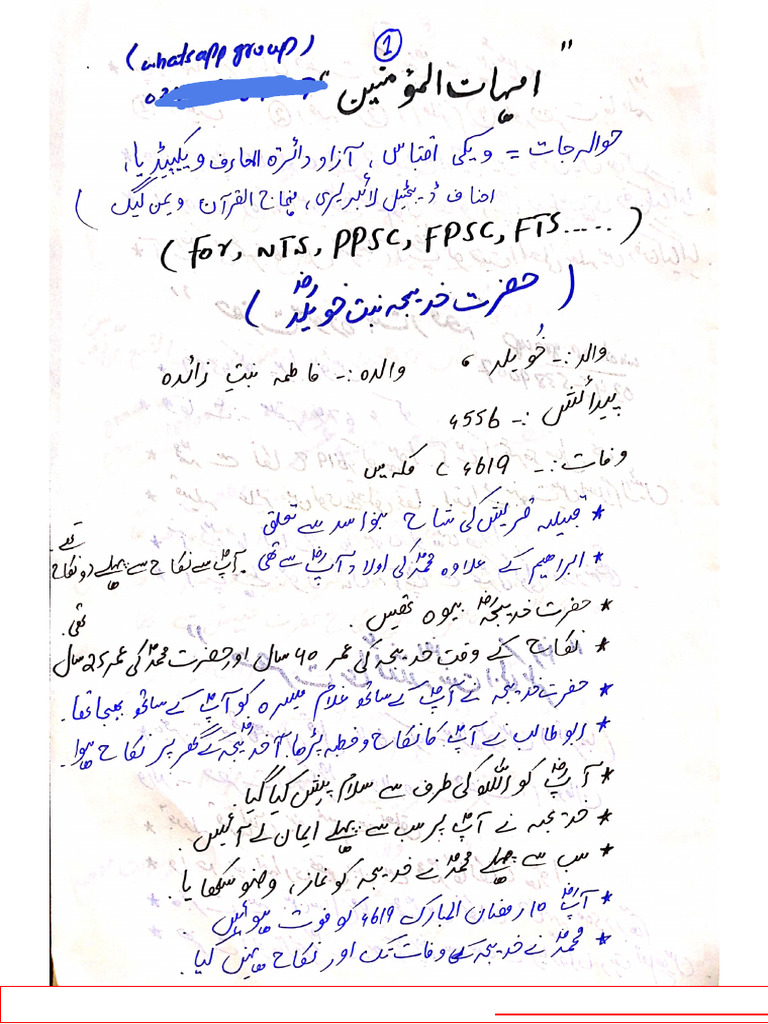 (whatsapp group)
1
"امہات المؤمنین"
حوالہ جات = ویکی اقتباس، آزاد دائرۃ المعارف ویکیپیڈیا،
احناف ڈیجیٹیل لائبریری، منہاج القرآن ویمن لیگ)
(for, NTS, PPSC, FPSC, FTS.....)
(حضرت خدیجہ بنت خویلدؓ)
والد:- خُویلد، والدہ:- فاطمہ بنتِ زائدہ
پیدائش:- 556ء
وفات:- 619ء (مکہ میں
* قبیلہ قریش کی شاخ بنو اسد سے تعلق
* ابراھیم کے علاوہ محمدؐ کی اولاد آپؓ سے تھی۔ آپؐ سے نکاح سے پہلے دو نکاح تھے۔
* حضرت خدیجہؓ بیوہ تھیں۔
* نکاح کے وقت خدیجہ کی عمر 40 سال اور حضرت محمدؐ کی عمر 25 سال تھی۔
* حضرت خدیجہ نے آپؐ کے ساتھ غلام میسرہ کو آپؐ کے ساتھ بھیجا تھا۔
* ابو طالب نے آپؐ کا نکاح و خطبہ پڑھا۔ خدیجہؓ کے گھر پر نکاح ہوا۔
* آپؓ کو اللہ کی طرف سے سلام پیش کیا گیا۔
* خدیجہ نے آپؐ پر سب سے پہلے ایمان لے آئیں۔
* سب سے پہلے محمدؐ نے خدیجہ کو نماز، وضو سکھایا۔
* آپؓ 10 رمضان المبارک 619ء کو فوت ہوئیں۔
* محمدؐ نے خدیجہ کے وفات تک اور نکاح نہیں کیا۔